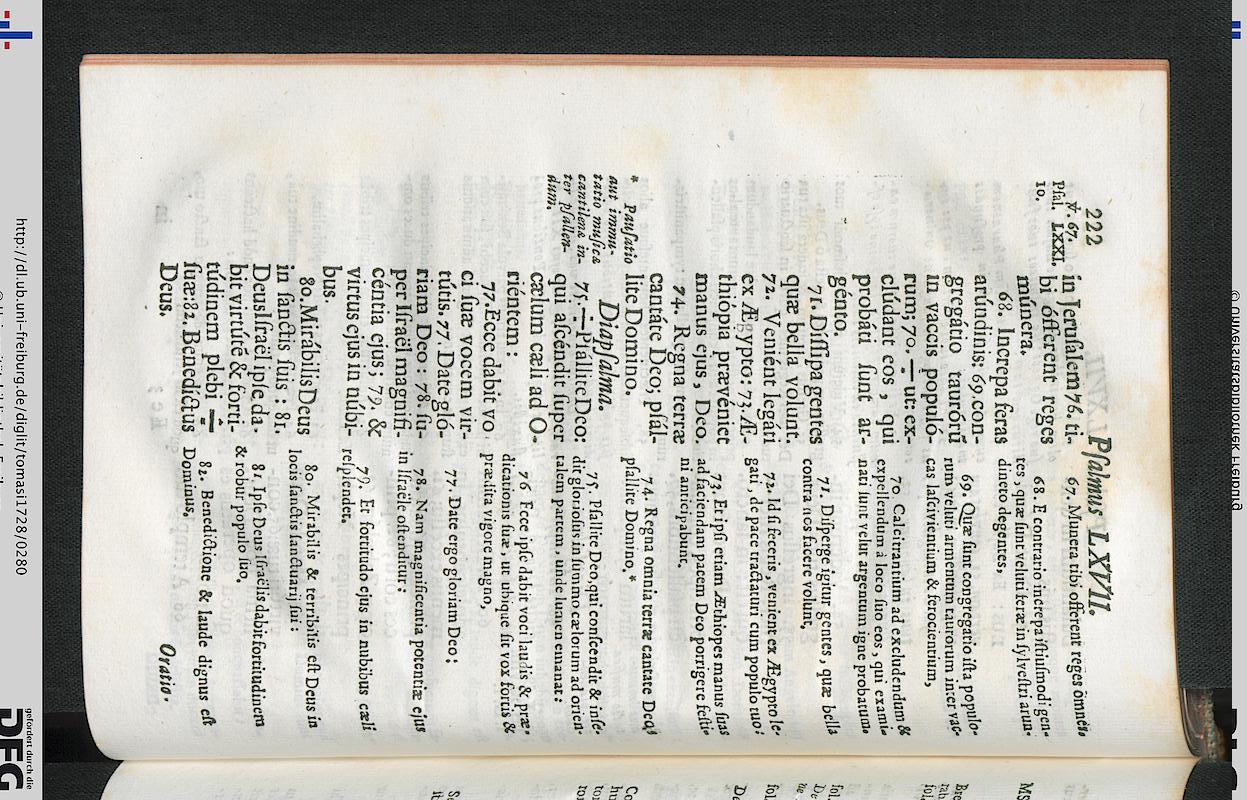 222
Psalmus LXVII.
℣. 67.
Psal. LXXI.
10.
in Jerusalem 76. ti-
bi ófferent reges
múnera.
68. Increpa feras
arúndinis: 69. con-
gregátio taurórū
in vaccis populó-
rum; 70. — ut: ex-
clúdant eos, qui
probáti sunt ar-
génto.
71. Dissipa gentes
quæ bella volunt.
72. Veniént legáti
ex Ægypto: 73. Æ-
thiópia prævéniet
manus ejus, Deo.
74. Regna terræ
cantáte Deo; psál-
lite Domino.
Diapsalma.
* Pausatio
aut immu-
tatio musicæ
cantilenæ in-
ter psallen-
dum.
75. ÷ Psállite Deo:
qui ascéndit super
cælum cæli ad O-
riéntem:
77. Ecce dabit vo
ci suæ vocem vir-
tútis. 77. Date gló-
riam Deo: 78. su-
per Israël magnifi-
céntia ejus; 79. &
virtus ejus in núbi-
bus.
80. Mirábilis Deus
in sanctis suis: 81.
Deus Israël ipse da-
bit virtútē & forti-
túdinem plebi ÷
suæ: 82. Benedíctus
Deus.
67. Munera tibi offerent reges omnes.
68. E contrario increpa istiusmodi gen-
tes, quæ sunt veluti feræ in sylvestri arun-
dineto degentes,
69. Quæ sunt congregatio ista populo-
rum veluti armentum taurorum inter vac-
cas lascivientium & ferocientium,
70. Calcitrantium ad excludendum &
expellendum à loco suo eos, qui exami-
nati sunt velut argentum igne probatum.
71. Disperge igitur gentes, quæ bella
contra nos facere volunt,
72. Id si feceris, venient ex Ægypto le-
gati, de pace tractaturi cum populo tuo:
73. Et ipsi etiam Æthiopes manus suas
ad faciendam pacem Deo porrigere festi-
ni anticipabunt,
74. Regna omnia terræ cantate Deo,
psallite Domino, *
75. Psallite Deo, qui conscendit & inse-
dit gloriosus in summo cælorum ad orien-
talem partem, unde lumen emanat:
76 Ecce ipse dabit voci laudis & præ-
dicationis suæ, ut ubique sit vox fortis &
prædita vigore magno,
77. Date ergo gloriam Deo:
78. Nam magnificentia potentiæ ejus
in Israële ostenditur:
79. Et fortitudo ejus in nubibus cæli
resplendet.
80. Mirabilis & terribilis est Deus in
locis sanctis sanctuarij sui:
81. Ipse Deus Israëlis dabit fortitudinem
& robur populo suo,
82. Benedictione & laude dignus est
Dominus,
Oratio.
http://dl.ub.uni-freiburg.de/diglit/tomasi1728/0280
© Universitätsbibliothek Freiburg
gefördert durch die
DFG